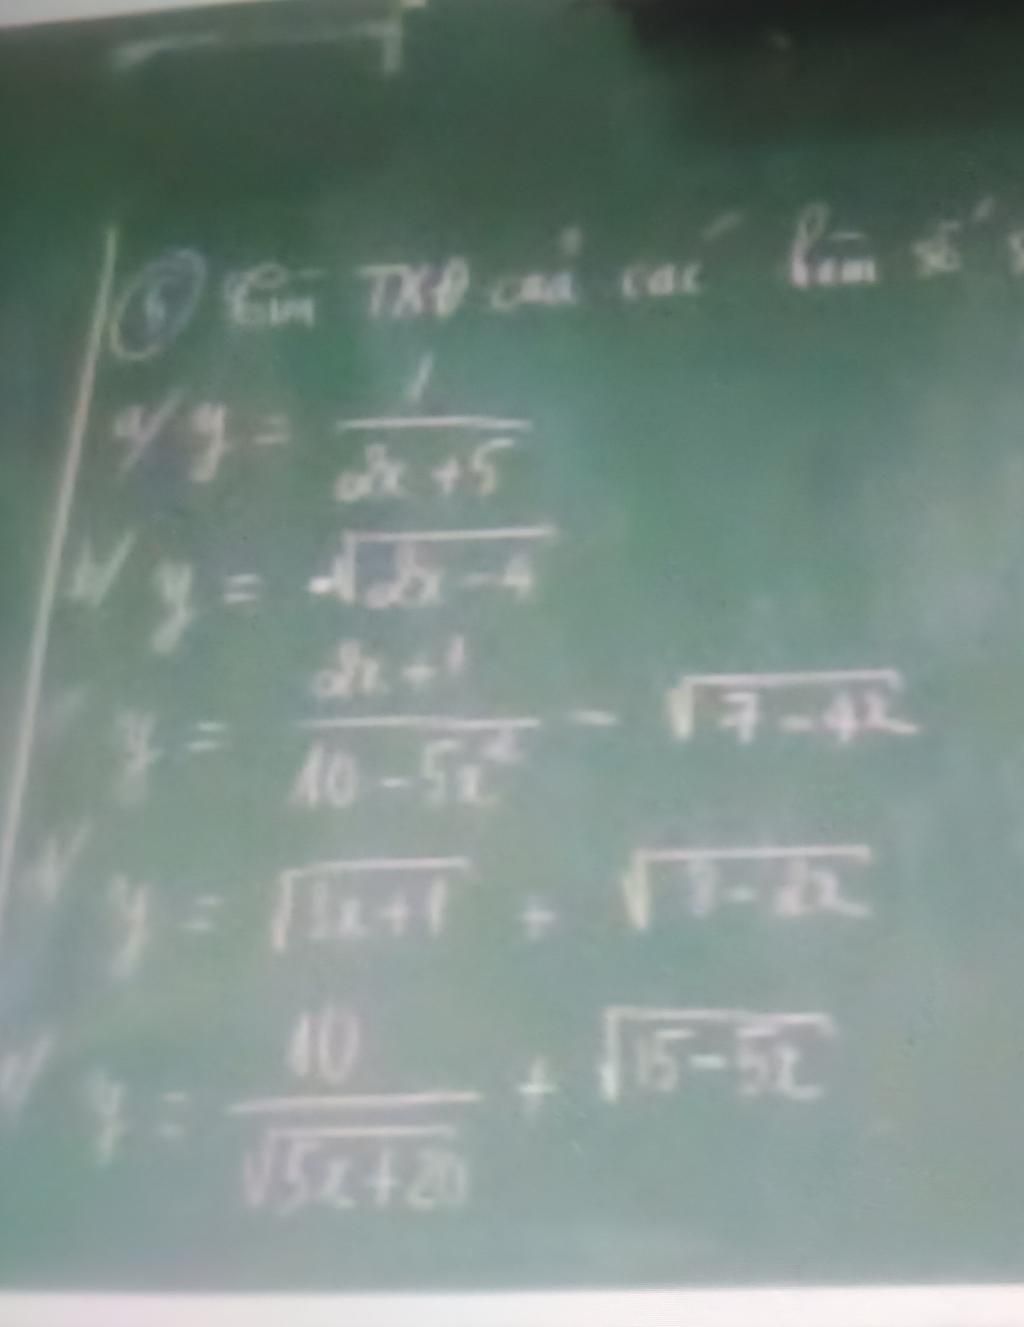 Tìm TXĐ của các hàm số
a/ y = 1/(2x + 5)
b/ y = √(2x - 4)
y = (2x + 1)/(10 - 5x²) - √(7 - 4x)
y = √(x + 1) + √( - 2x)
y = 10/√(5x + 20) + √(15 - 5x)